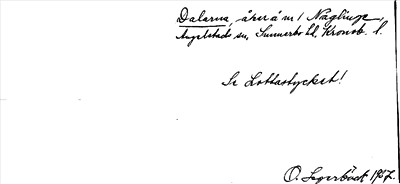 Dalarna, åker å m/ Näglinge,
Angelstads sn, Sunnerbo hd, Kronob. l.
Se Lottastycket!
O. Lagerbäck 1937.